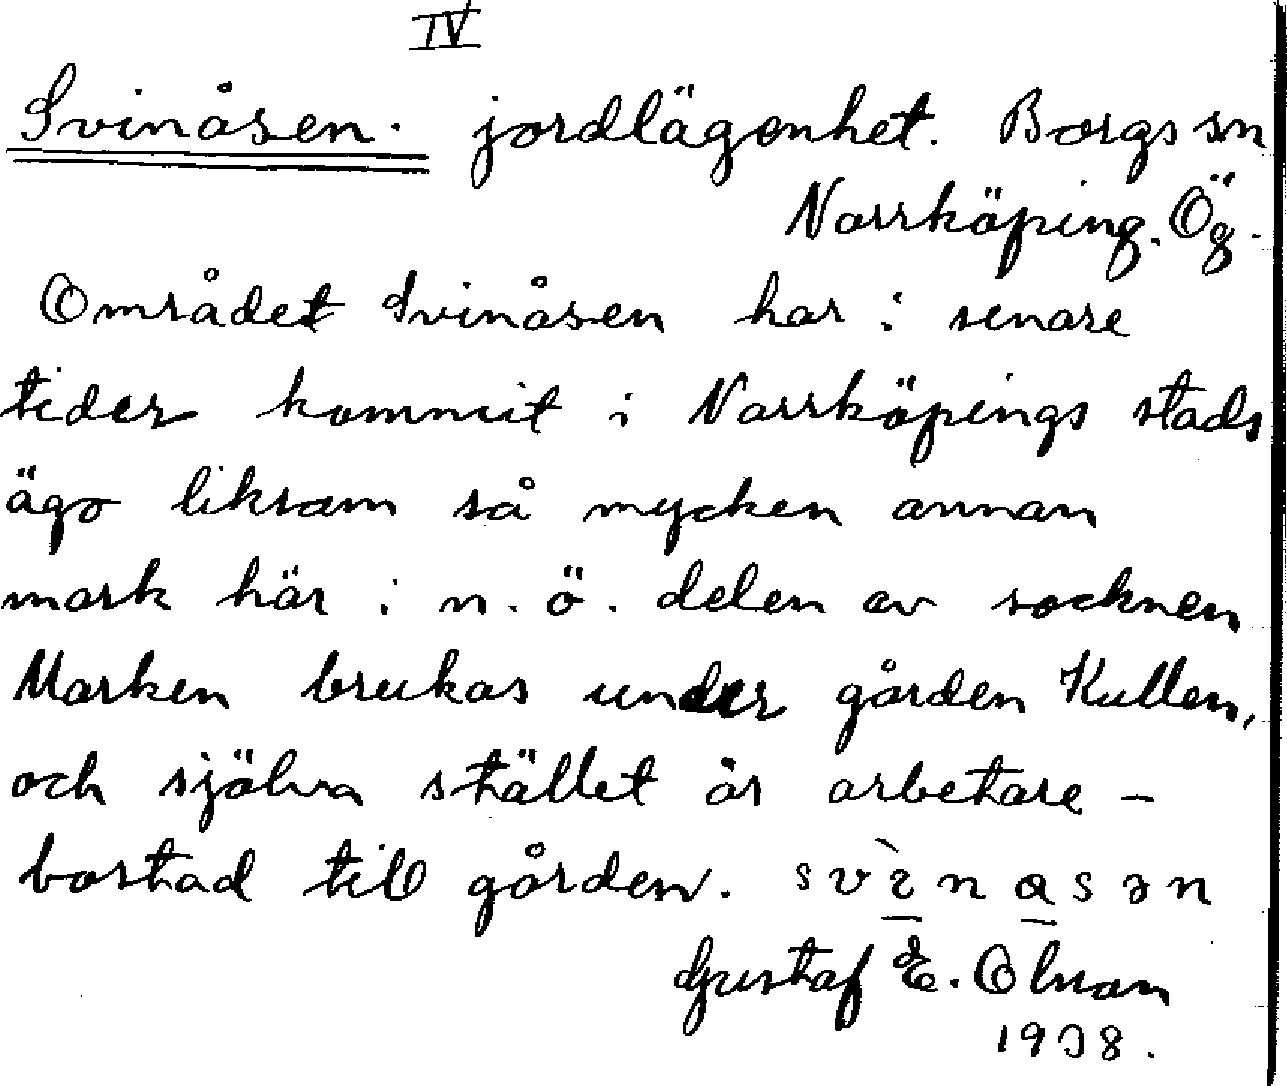 IV
Svinåsen. jordlägenhet. Borgs sn
Norrköping. Ög.
Området Svinåsen har i senare
tider kommit i Norrköpings stads
ägo liksom så mycken annan
mark här i n. ö. delen av socknen
Marken brukas under gården Kullen,
och själva stället är arbetare-
bostad till gården.
Gustaf E. Olsson
1938.